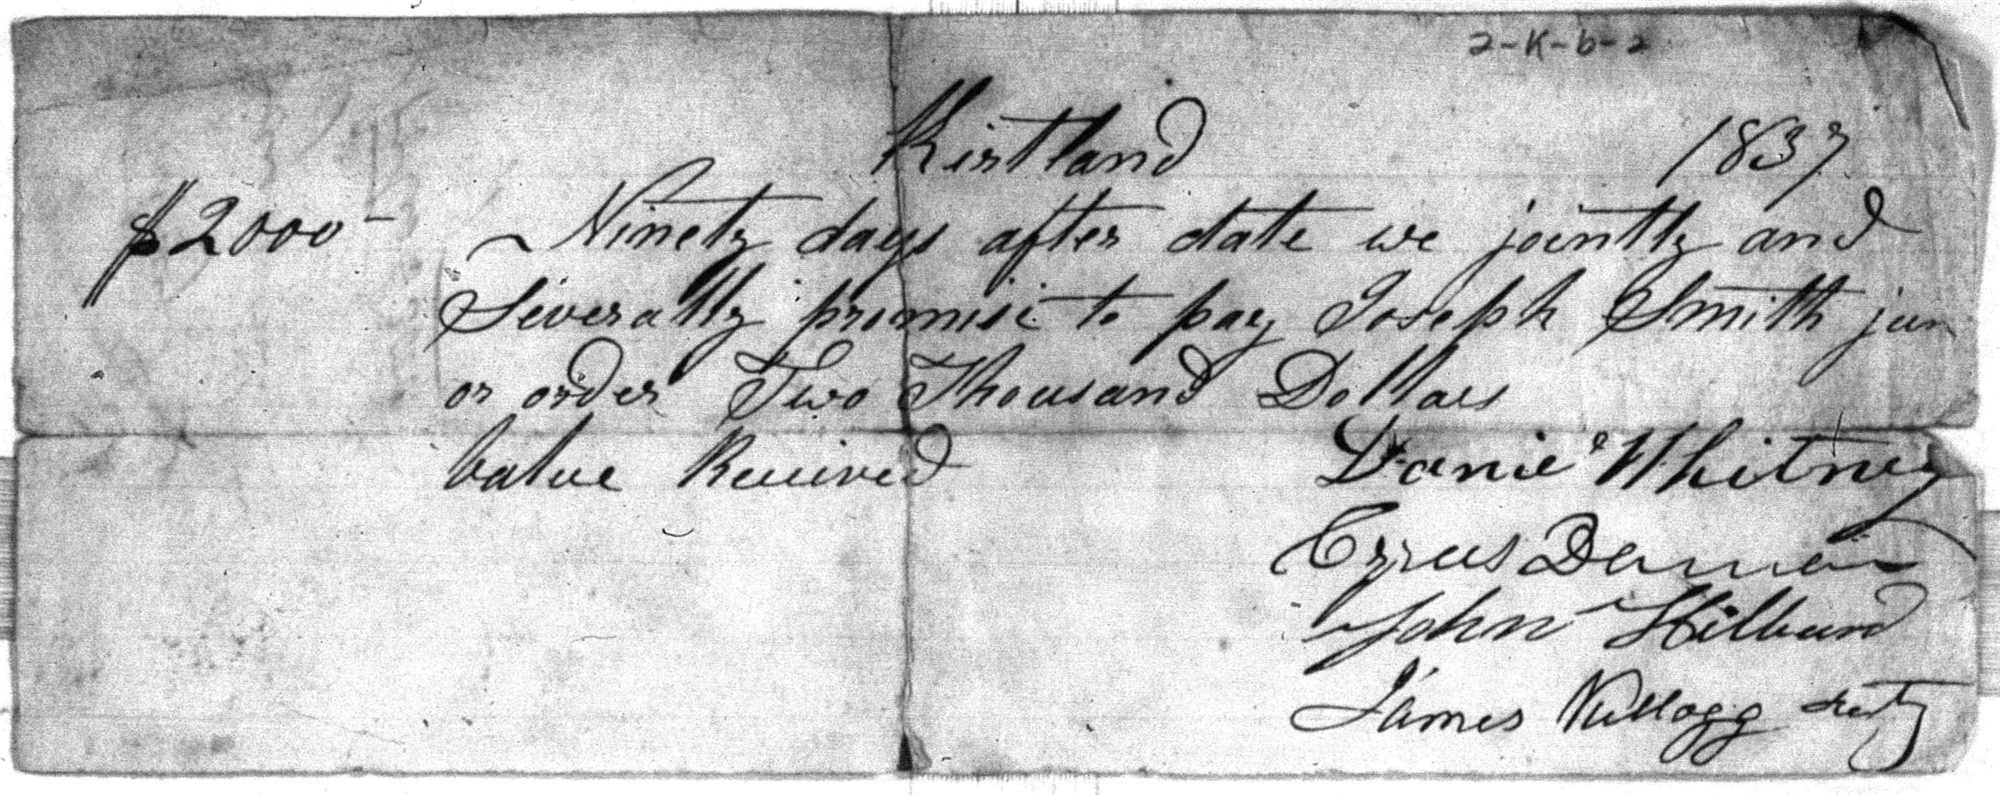 2-K-b-2
Kirtland 1837
$2000- Ninety days after date we jointly and
Severally promise to pay Joseph Smith jun
or order Two Thousand Dollars
Value Received Daniel Whitney
Cyrus
John
James Kellogg